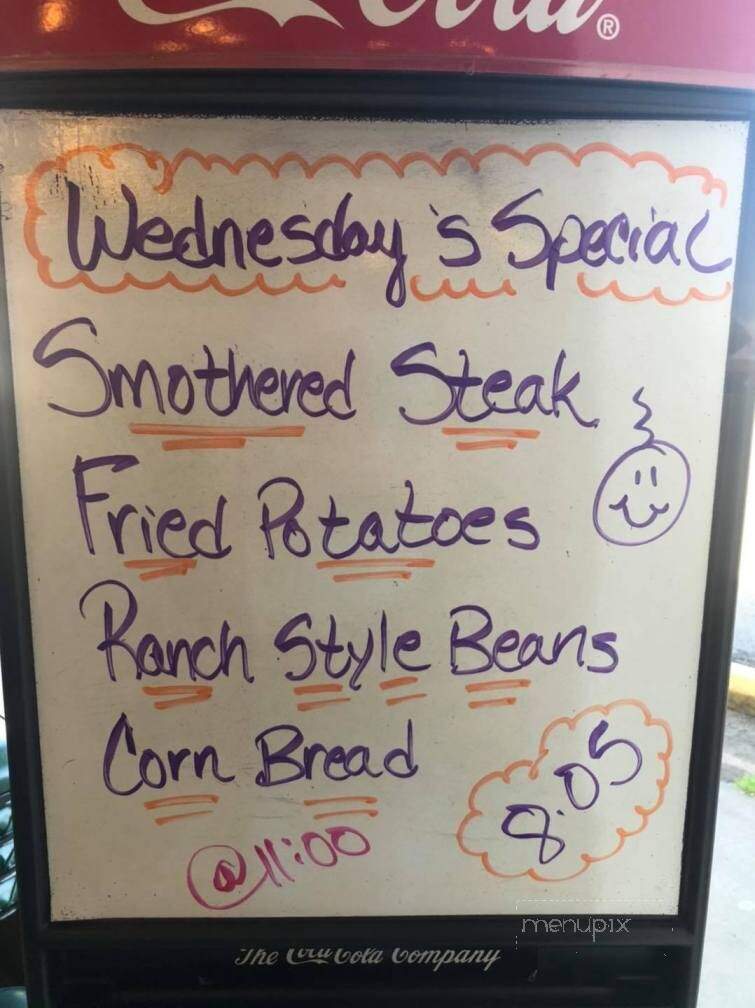 Cola®
Wednesday's Special
Smothered Steak
Fried Potatoes
Ranch Style Beans
Corn Bread
8.05
@11:00
menupix
The Coca Cola Company